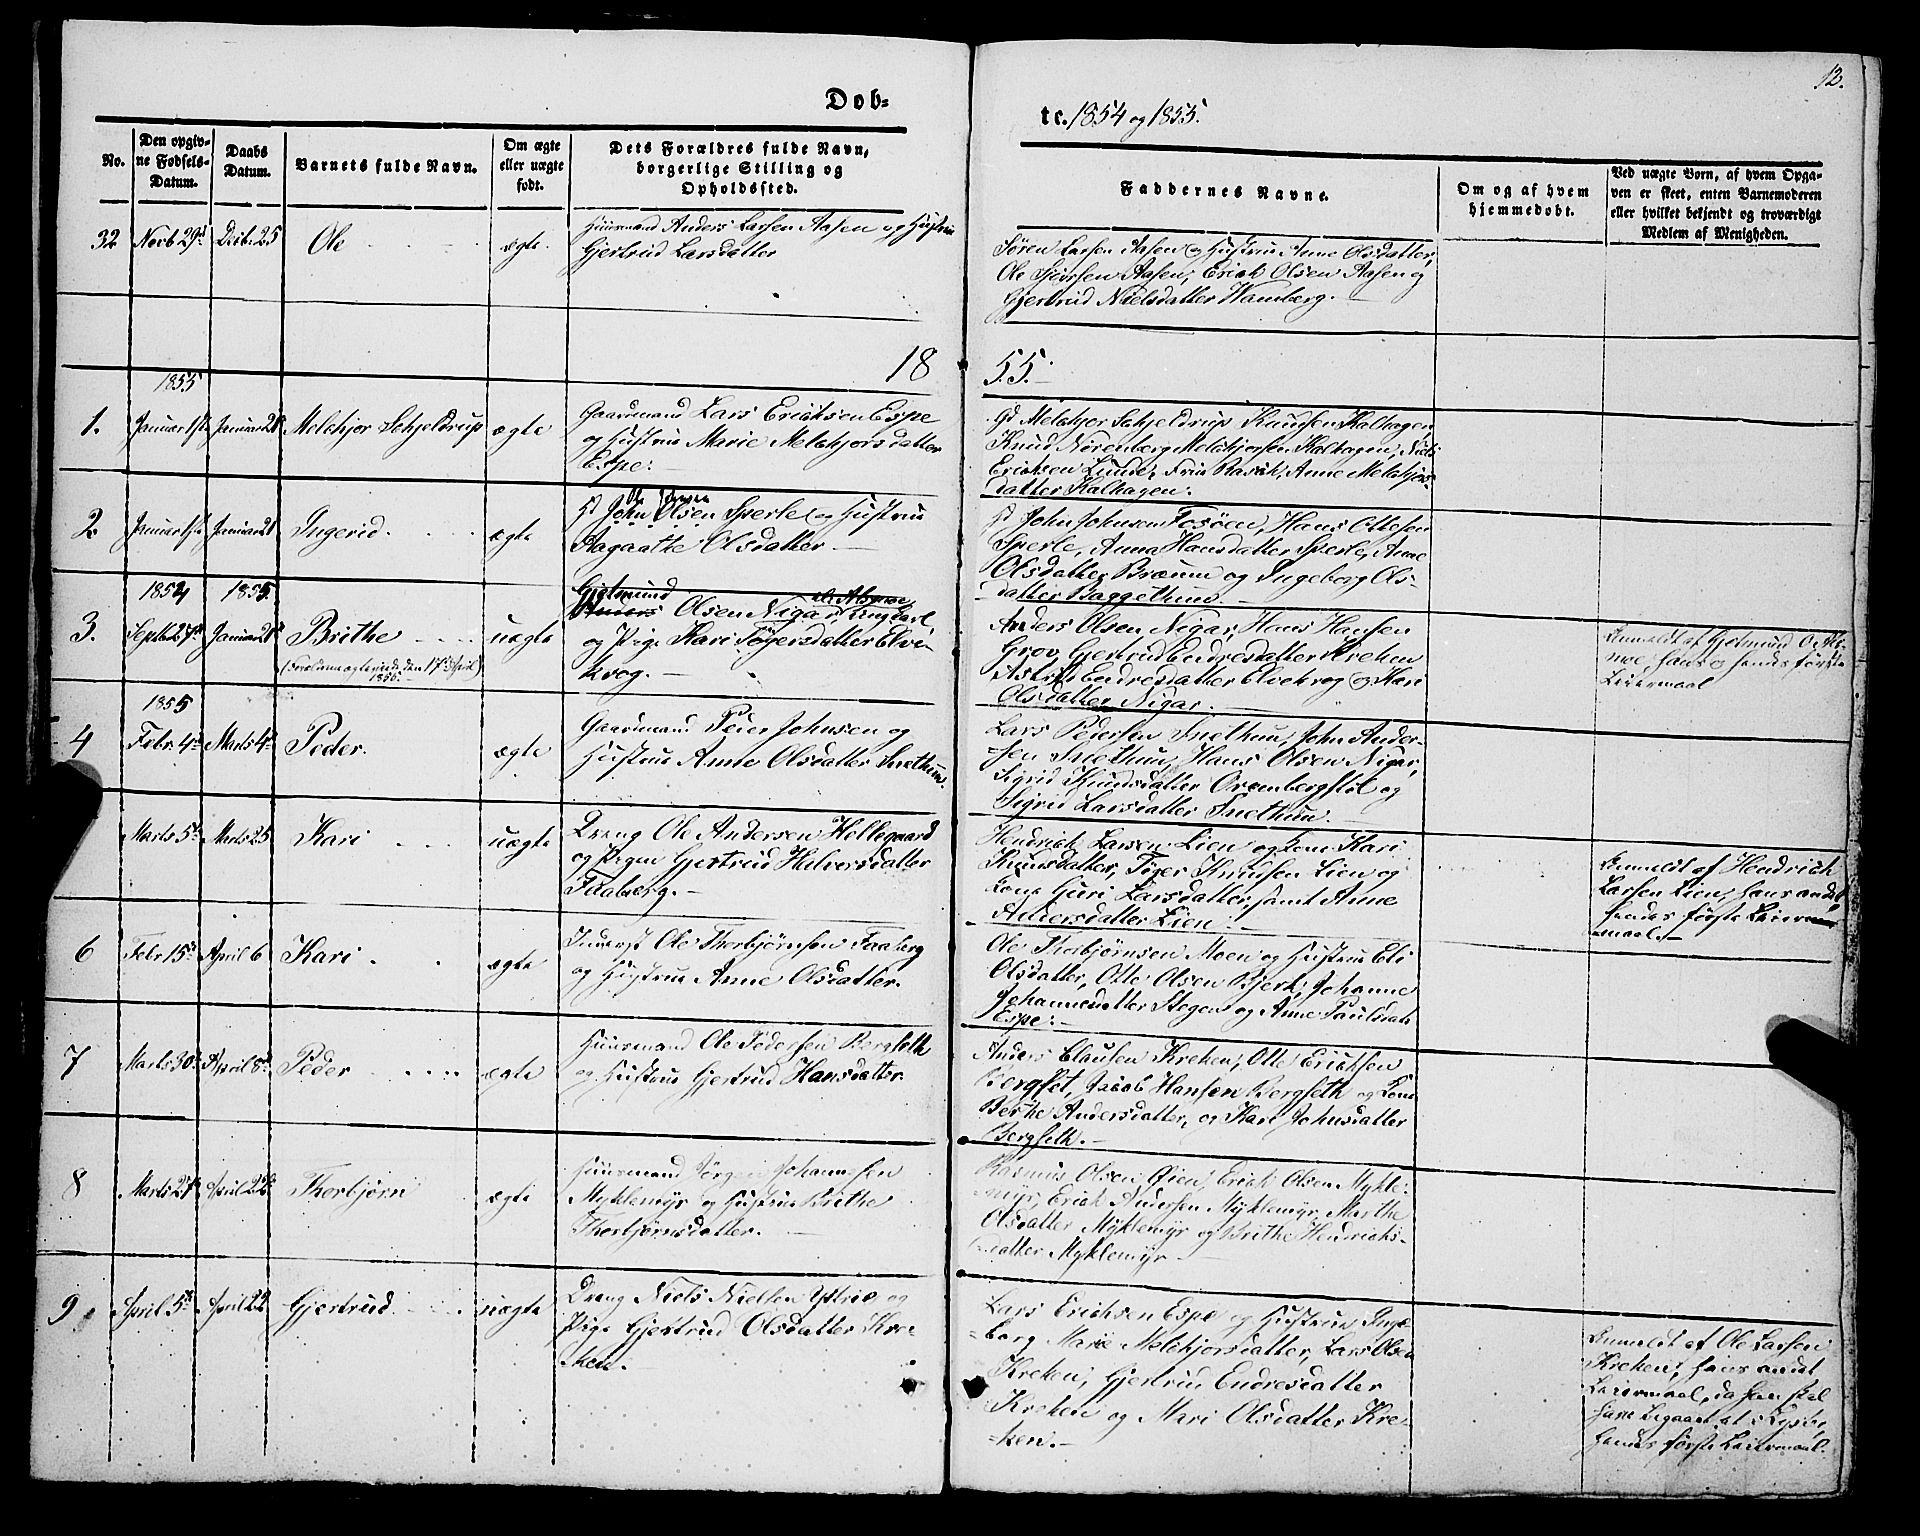 12.
Dob=
te. 1854 og 1855.
No.
Den opgiv-
ne Fødsels-
Datum.
Daabs
Datum.
Barnets fulde Navn.
Om ægte
eller uægte
født.
Dets Forældres fulde Navn,
borgerlige Stilling og
Opholdssted.
Faddernes Navne.
Om og af hvem
hjemmedøbt.
Ved uægte Born, af hvem Opga-
ven er skeet, enten Barnemoderen
eller hvilket bekjendt og troværdigt
Medlem af Menigheden.
32 Novb 29d Decbr 25 Ole ægte
Huusmand Anders Larsen Aasen og Hustru
Gjertrud Larsdatter
Søren Larsen Aasen og Hustrue Anne Olsdatter,
Ole Sjursen Aasen, Erick Olsen Aasen og
Gjertrud Nielsdatter Hamberg.
18 55.
1855
1. Januar 1ste Januar 21 Melchjor Schjeldrup ægte
Gaardmand Lars Ericksen Espe
og Hustrue Marie Melchjorsdatter
Espe.
Gd Melchjor Schjeldrup Knudsen Kalhagen
Knud Nørenberg Melchjorsen Kalhagen, Niels
Ericksen Lunde, Frue Anne Melchjors-
datter Kalhagen.
2. Januar 1ste Januar 21 Ingerid ægte
Ole Larsen
Gd John Olsen Sperle og Hustrue
Aagaathe Olsdatter.
Gd John Johnsen Fosøen, Hans Ottesen
Sperle, Anna Hansdatter Sperle, Anne
Olsdatter Bræume og Ingeborg Ols-
datter Baggethun.
1854 1855.
3. Septbr 27de Januar 21de Brithe uægte
(Forældrene ægteviede den 17de April
1855.)
Gjetmund
Anders Olsen Nigar, Ungkarl
og Pige Kari Tøgersdatter Elve-
krog.
Anders Olsen Nigar, Hans Hansen
Grov, Gjertrud Endresdatter Kreken
Astrid Endresdatter Elvekrog og Kari
Olsdatter Nigar.
Anmeldt af Gjetmund O.
moe, hans og hendes første
Leiermaal
1855
4 Febr. 4de Marts 4de Peder. ægte
Gaardmand Peder Johnsen og
Hustrue Anne Olsdatter Snethun.
Lars Pedersen Snethun, John Ander-
sen Snethun, Hans Olsen Nigar,
Sigrid Knudsdatter Ormbergstøl og
Sigrid Larsdatter Snethun.
Marts 5te Marts 25 Kari uægte
Dreng Ole Andersen Hellegaard
og Pigen Gjertrud Halversdatter
Faaberg.
Hendrick Larsen Lien og Kone Kari
Knudsdatter, Tøger Knudsen Lien og
Kone Guri Larsdatter, samt Anne
Andersdatter Lien.
Anmeldt af Hendrich
Larsen Lien, hans andet,
hendes første Leier-
maal.
6 Febr 15de April 6 Kari ægte
Inderst Ole Thorbjørnsen Faaberg
og Hustrue Anne Olsdatter.
Ole Thorbjørnsen Moen og Hustrue Eli
Olsdatter, Otte Olsen Bjerk, Johanne
Johannesdatter Stegen og Anne Paulsdatt.
Espe.
7 Marts 30de April 8de Peder ægte
Huusmand Ole Pedersen Bergseth
og Hustrue Gjertrud Hansdatter.
Anders Clausen Kreken, Otte Ericksen
Bergset, Jacob Hansen Bergseth og Kone
Berthe Andersdatter, og Kari Johnsdatter
Bergseth.
8 Marts 27 April 22de Thorbjørn ægte
Huusmand Jørgen Johannesen
Myklemyr og Hustrue Brithe
Thorbjørnsdatter.
Rasmus Olsen Øien, Erick Olsen Mykle-
myr, Erick Andersen Myklemyr, Marthe
Olsdatter Myklemyr og Brithe Hendricks-
datter Myklemyr
9. April 5te April 22 Gjertrud uægte
Dreng Niels Nielsen Ystrie og
Pige Gjertrud Olsdatter Kre-
ken.
Lars Erichsen Espe og Hustrue Inge-
borg Marie Melchjorsdatter, Lars Olsen
Kreken, Gjertrud Endresdatter
Kreken og Mari Olsdatter Kre-
ken.
Anmeldt af Ole Larsen
Kreken, hans andet
Leiermaal, da han skal
have
hendes første Leiermaal.